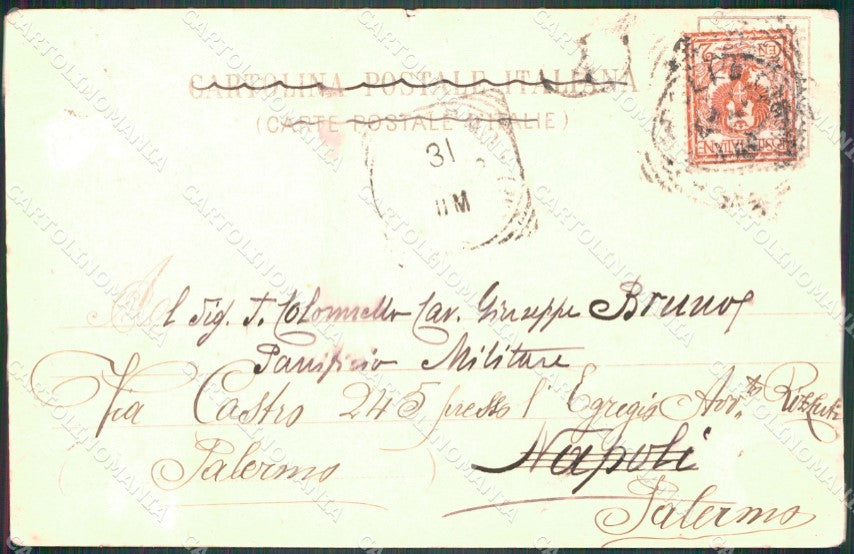 CARTOLINA POSTALE ITALIANA
(CARTE POSTALE D'ITALIE)
31
11 M
Al Sig. T. Colonnello Cav. Giuseppe Bruno
Panificio Militare
Via Castro 245 presso l'Egregio Avv.to
Palermo
Napoli
Palermo
CARTOLINOMANIA